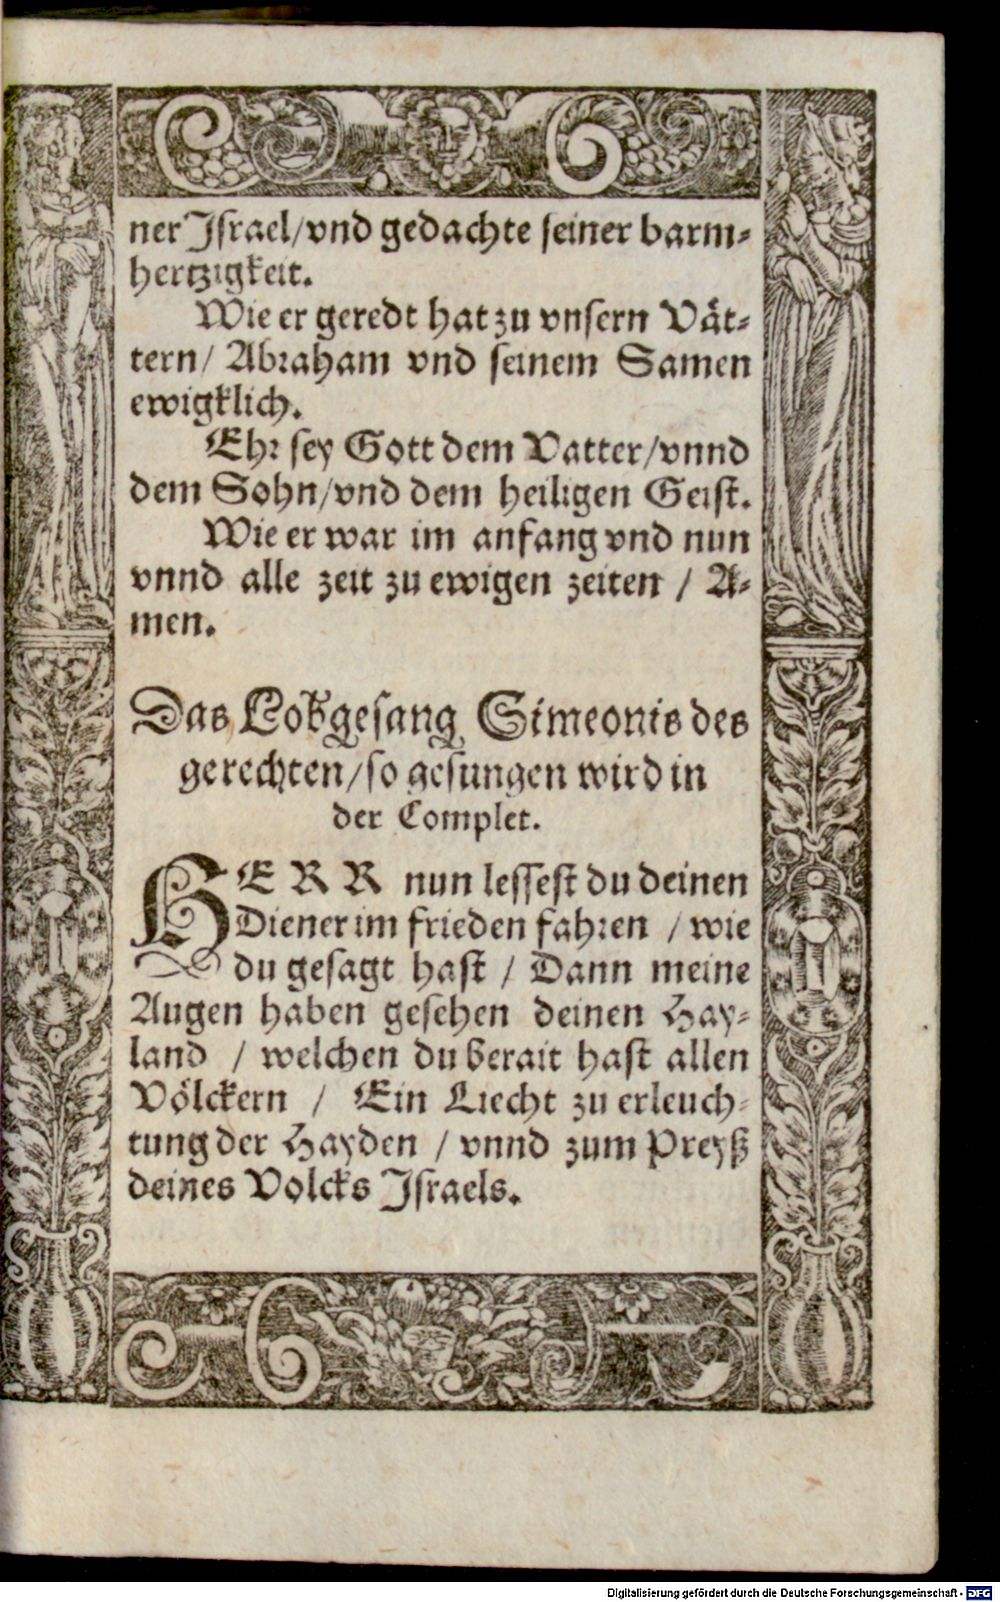 ner Israel/vnd gedachte seiner barm-
hertzigkeit.
Wie er geredt hat zu vnsern Vät-
tern/ Abraham vnd seinem Samen
ewigklich.
Ehr sey Gott dem Vatter/vnnd
dem Sohn/vnd dem heiligen Geist.
Wie er war im anfang vnd nun
vnnd alle zeit zu ewigen zeiten / A-
men.
Das Lobgesang Simeonis des
gerechten/so gesungen wird in
der Complet.
HERR nun lessest du deinen
Diener im frieden fahren / wie
du gesagt hast / Dann meine
Augen haben gesehen deinen Hay-
land / welchen du berait hast allen
Völckern / Ein Liecht zu erleuch-
tung der Hayden / vnnd zum Preyß
deines Volcks Israels.
Digitalisierung gefördert durch die Deutsche Forschungsgemeinschaft - DFG